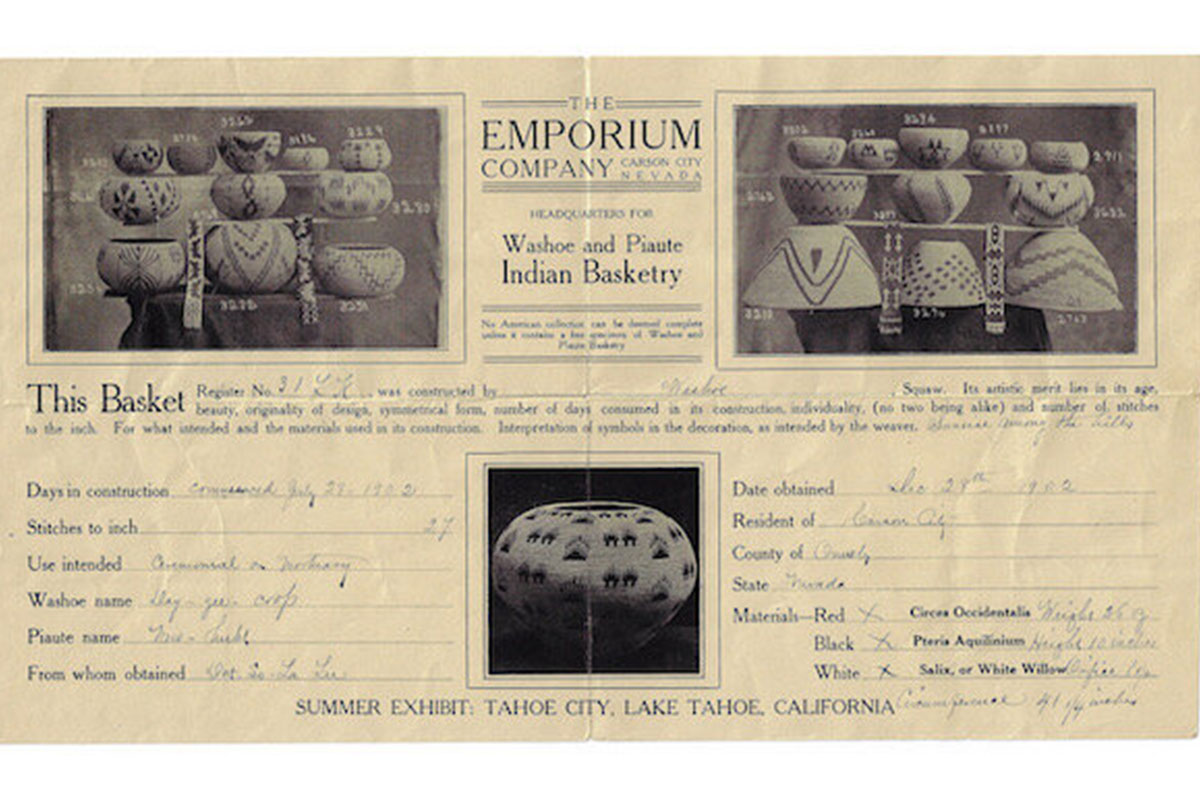 THE
EMPORIUM
COMPANY CARSON CITY NEVADA
HEADQUARTERS FOR
Washoe and Piaute
Indian Basketry
No American collection can be deemed complete
unless it contains a fine specimen of Washoe and
Piaute Basketry
This Basket Register No. 31 L K was constructed by Washoe, Squaw. Its artistic merit lies in its age,
beauty, originality of design, symmetrical form, number of days consumed in its construction, individuality, (no two being alike) and number of stitches
to the inch. For what intended and the materials used in its construction. Interpretation of symbols in the decoration, as intended by the weaver. Sunrise among the hills
Days in construction commenced July 28 - 1902
Stitches to inch 27
Use intended Ceremonial or Mortuary
Washoe name Day-gee-coop
Piaute name
From whom obtained Dat So La Lee
Date obtained Dec 28th 1902
Resident of Carson City
County of Ormsby
State Nevada
Materials—Red X Circea Occidentalis Weight 26 oz
Black X Pteris Aquilinium Height 10 inches
White X Salix, or White Willow
SUMMER EXHIBIT: TAHOE CITY, LAKE TAHOE, CALIFORNIA Circumference 41 1/4 inches